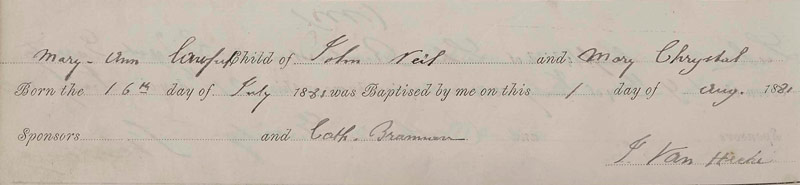 Mary-Ann Child of John Neil and Mary Chrystal
Born the 16th day of July 1881 was Baptised by me on this 1 day of Aug. 1881
Sponsors and Cath. Brannan
J Van